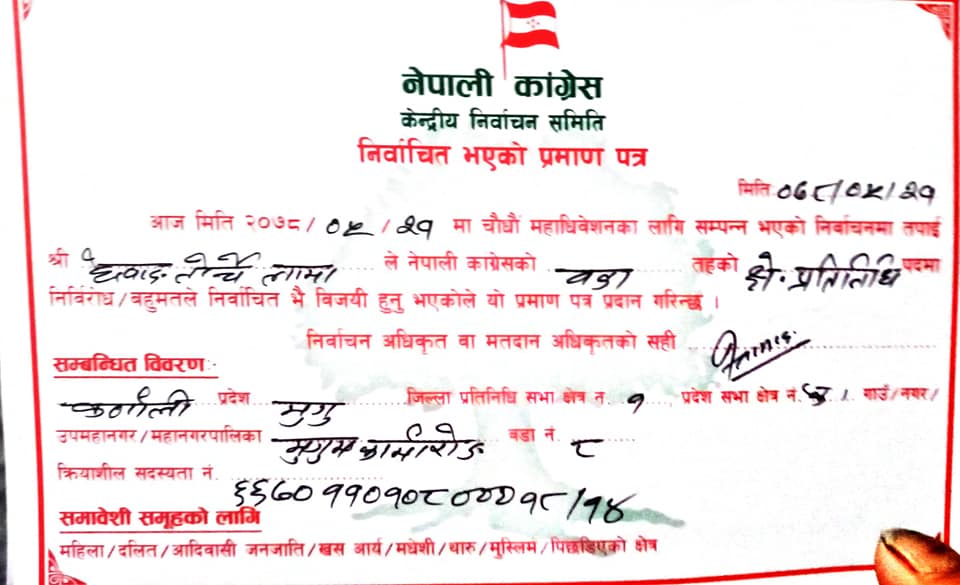 नेपाली कांग्रेस
केन्द्रीय निर्वाचन समिति
निर्वाचित भएको प्रमाण पत्र
मिति ०७८/०५/२१
आज मिति २०७८/०५/२१ मा चौधौं महाधिवेशनका लागि सम्पन्न भएको निर्वाचनमा तपाई
श्री छेवाङ तोर्चे लामा ले नेपाली कांग्रेसको वडा तहको क्षे. प्रतितिधि पदमा
निर्विरोध/बहुमतले निर्वाचित भै विजयी हुनु भएकोले यो प्रमाण पत्र प्रदान गरिन्छ ।
निर्वाचन अधिकृत वा मतदान अधिकृतको सही
सम्बन्धित विवरण:-
कर्णाली प्रदेश मुगु जिल्ला प्रतिनिधि सभा क्षेत्र नं. १, प्रदेश सभा क्षेत्र नं. गाउँ/नगर/
उपमहानगर/महानगरपालिका मुगुम कार्मारोङ वडा नं. ८
क्रियाशील सदस्यता नं.
६६७०११०१०८०००१८/१४
समावेशी समूहको लागि
महिला/दलित/आदिवासी जनजाति/खस आर्य/मधेशी/थारु/मुस्लिम/पिछडिएको क्षेत्र